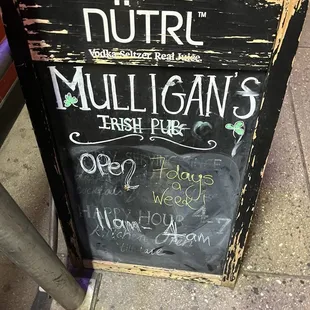 NÜTRL™
Vodka Seltzer. Real Juice.
MULLIGAN'S
IRISH PUB
OPEN 7 days
a
week!
11am - 4am